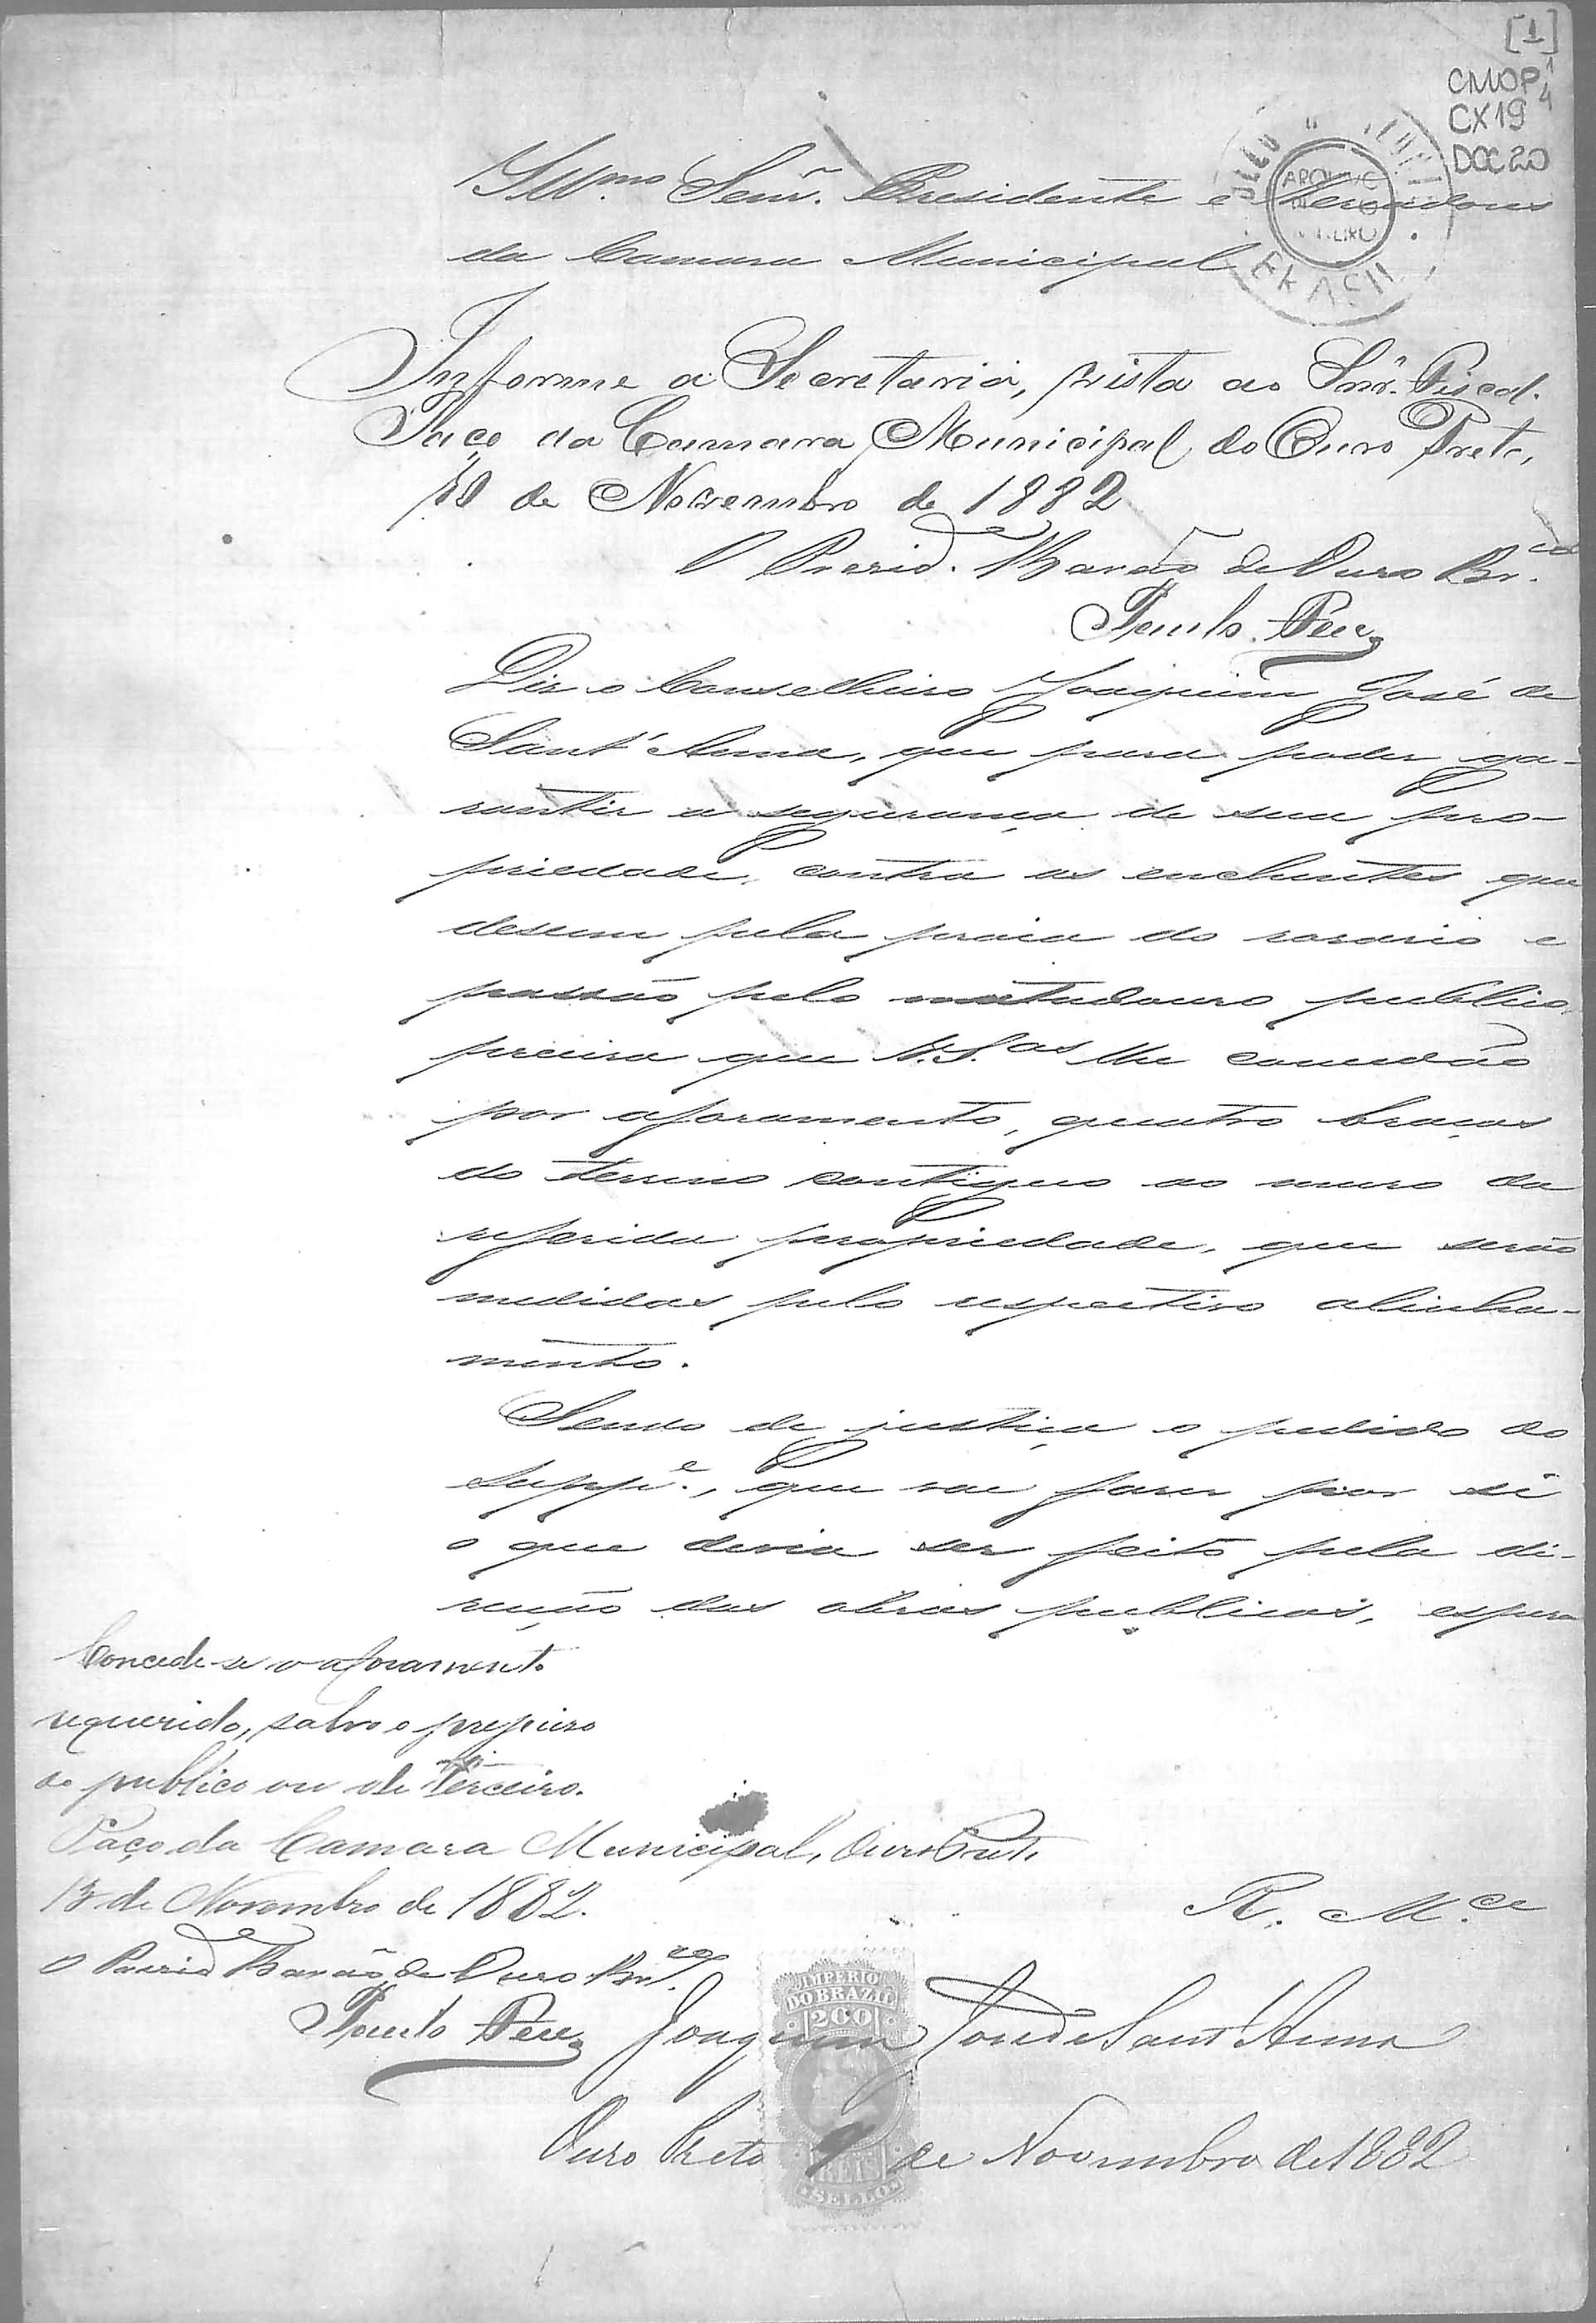 [1]
CMOP 1/4
CX19
DOC 20
ARQUIVO
Illmo. Senr. Presidente e Vereadores
da Camara Municipal
Informe a Secretaria, vista ao Snr. Fiscal.
Paço da Camara Municipal do Ouro Preto,
10 de Novembro de 1882
O Presid.e Barão de Ouro Br.co
Diz o Conselheiro Joaquim José de
Sant'Anna, que para poder ga-
rantir a segurança de sua pro-
priedade, contra as enchentes que
descem pela praia do rosario e
passão pelo matadouro publico,
precisa que V.S.as lhe concedão
por aforamento, quatro braças
do terreno contiguo ao muro da
referida propriedade, que serão
medidas pelo respectivo alinha-
mento.
Sendo de justiça o pedido do
Supp.e, que vae fazer por si
o que devia ser feito pela di-
recção das obras publicas, espera
Concede-se o aforamento
requerido, salvo o prejuizo
do publico ou de terceiro.
Paço da Camara Municipal, Ouro Preto
13 de Novembro de 1882.
O Presid.e Barão de Ouro Br.co
R. M.ce
IMPERIO
DO BRAZIL
200
Joaquim José de Sant'Anna
Ouro Preto 9 de Novembro de 1882
REIS
SELLO